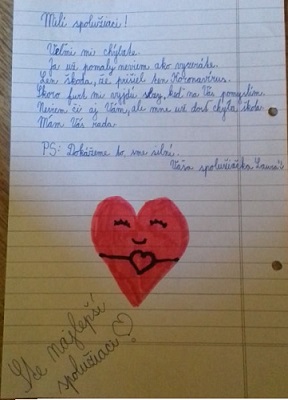 Milí spolužiaci!
Veľmi mi chýbate.
Ja už pomaly neviem ako vyzeráte.
Len škoda, že prišiel ten Koronavírus.
Skoro furt mi vyjdú slzy, keď na Vás pomyslím.
Neviem či aj Vám, ale mne už dosť chýba škola.
Mám Vás rada.
PS: Dokážeme to, sme silní.
Vaša spolužiačka Laura
Ste najlepší
spolužiaci